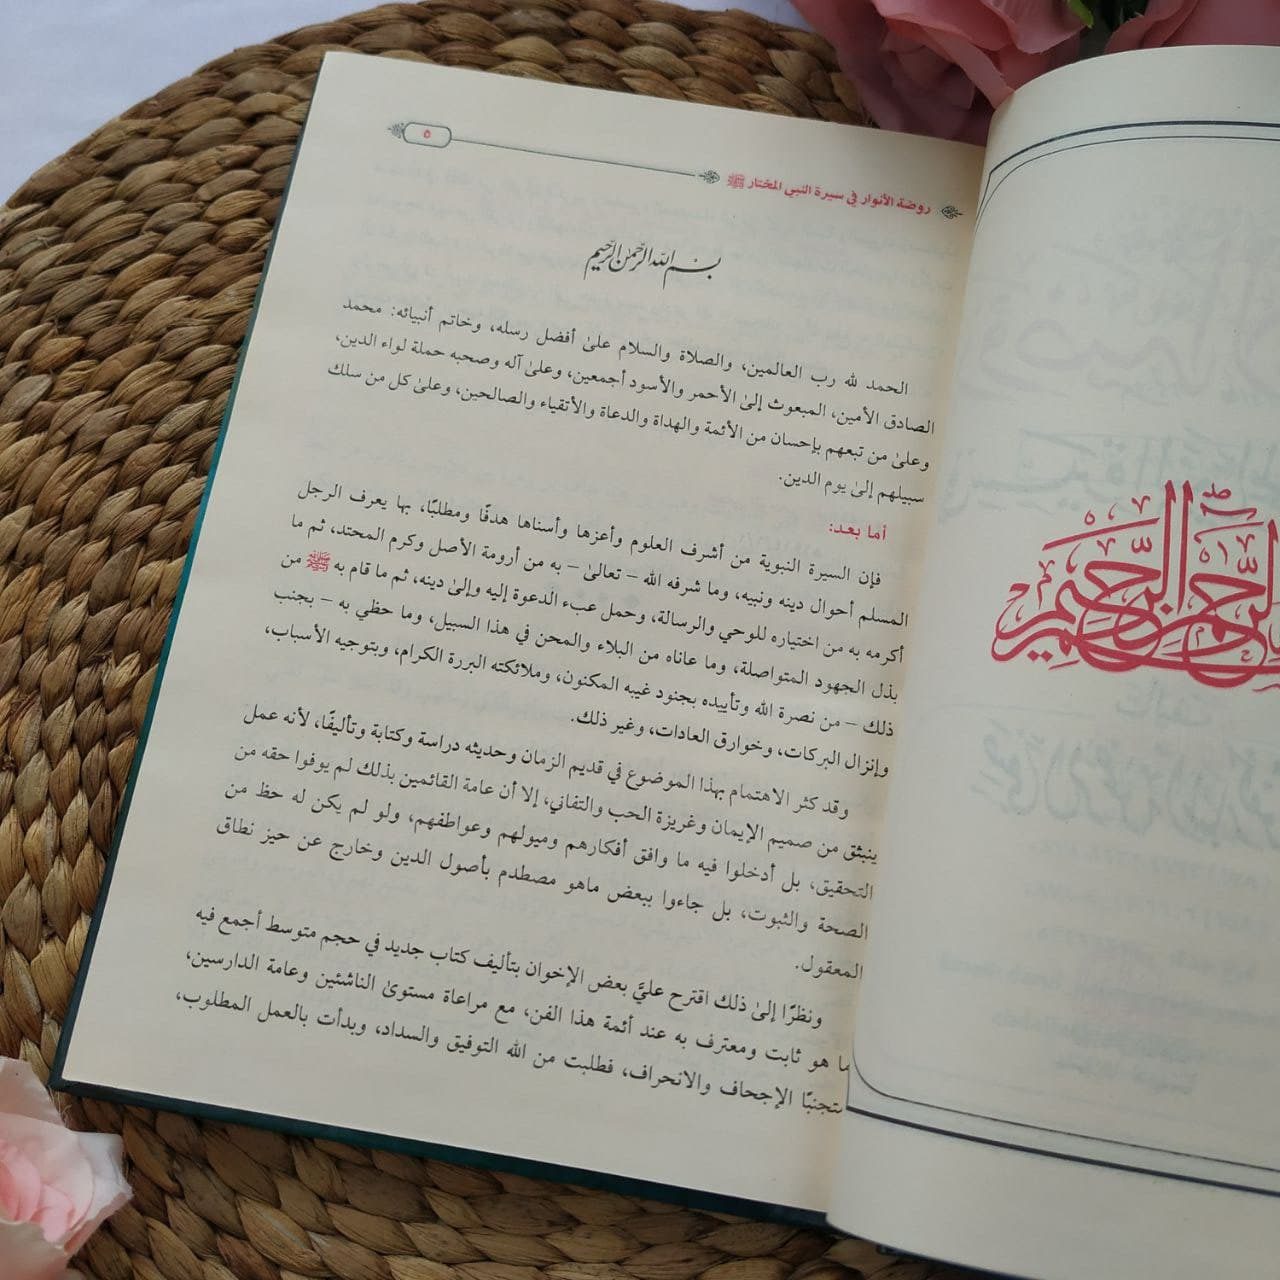 روضة الأنوار في سيرة النبي المختار ﷺ
٥
بسم الله الرحمن الرحيم
الحمد لله رب العالمين، والصلاة والسلام علىٰ أفضل رسله، وخاتم أنبيائه: محمد
الصادق الأمين، المبعوث إلىٰ الأحمر والأسود أجمعين، وعلىٰ آله وصحبه حملة لواء الدين،
وعلىٰ من تبعهم بإحسان من الأئمة والهداة والدعاة والأتقياء والصالحين، وعلىٰ كل من سلك
سبيلهم إلىٰ يوم الدين.
أما بعد:
فإن السيرة النبوية من أشرف العلوم وأعزها وأسناها هدفًا ومطلبًا، بها يعرف الرجل
المسلم أحوال دينه ونبيه، وما شرفه الله – تعالىٰ – به من أرومة الأصل وكرم المحتد، ثم ما
أكرمه به من اختياره للوحي والرسالة، وحمل عبء الدعوة إليه وإلىٰ دينه، ثم ما قام به ﷺ من
بذل الجهود المتواصلة، وما عاناه من البلاء والمحن في هذا السبيل، وما حظي به – بجنب
ذلك – من نصرة الله وتأييده بجنود غيبه المكنون، وملائكته البررة الكرام، وبتوجيه الأسباب،
وإنزال البركات، وخوارق العادات، وغير ذلك.
وقد كثر الاهتمام بهذا الموضوع في قديم الزمان وحديثه دراسة وكتابة وتأليفًا، لأنه عمل
ينبثق من صميم الإيمان وغريزة الحب والتفاني، إلا أن عامة القائمين بذلك لم يوفوا حقه من
التحقيق، بل أدخلوا فيه ما وافق أفكارهم وميولهم وعواطفهم، ولو لم يكن له حظ من
الصحة والثبوت، بل جاءوا ببعض ماهو مصطدم بأصول الدين وخارج عن حيز نطاق
المعقول.
ونظرًا إلىٰ ذلك اقترح عليَّ بعض الإخوان بتأليف كتاب جديد في حجم متوسط أجمع فيه
ما هو ثابت ومعترف به عند أئمة هذا الفن، مع مراعاة مستوىٰ الناشئين وعامة الدارسين،
متجنبًا الإجحاف والانحراف، فطلبت من الله التوفيق والسداد، وبدأت بالعمل المطلوب،
الرحمن الرحيم